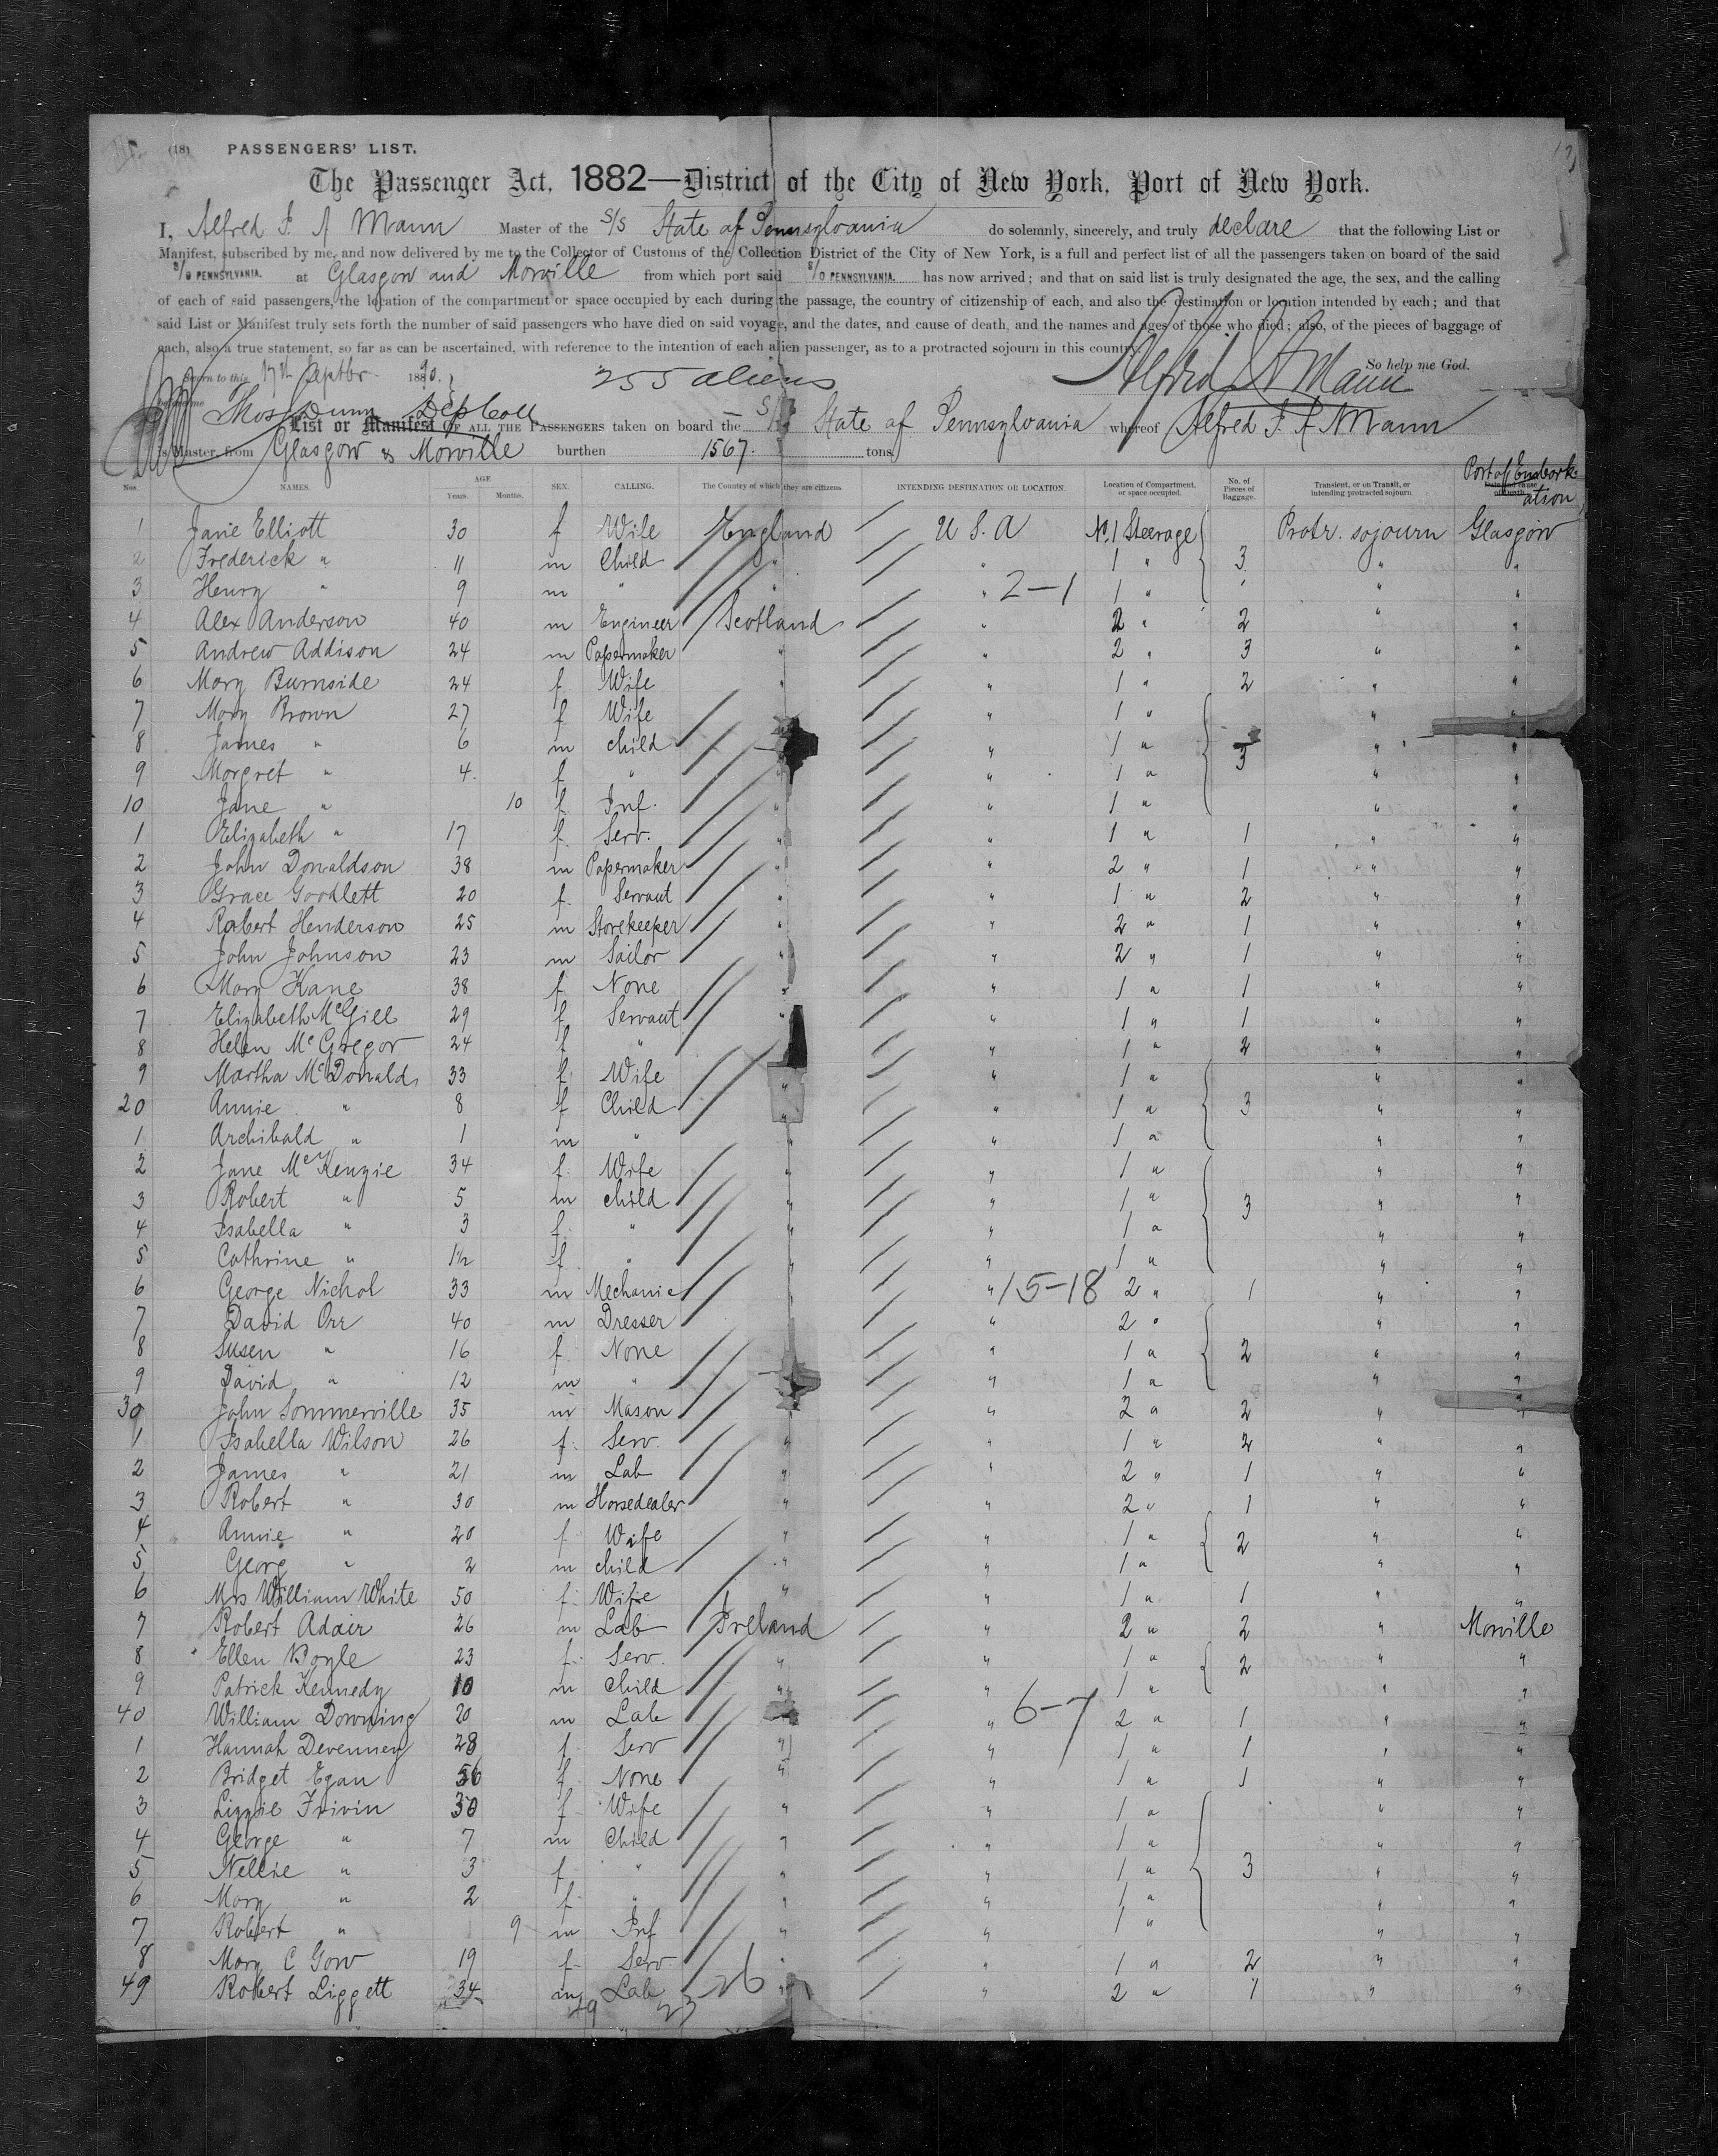 (18) PASSENGERS' LIST.
The Passenger Act, 1882—District of the City of New York, Port of New York.
I, Alfred J. A Mann Master of the S/S State of Pennsylvania do solemnly, sincerely, and truly declare that the following List or
Manifest, subscribed by me, and now delivered by me to the Collector of Customs of the Collection District of the City of New York, is a full and perfect list of all the passengers taken on board of the said
S/O PENNSYLVANIA. at Glasgow and Moville from which port said S/O PENNSYLVANIA. has now arrived; and that on said list is truly designated the age, the sex, and the calling
of each of said passengers, the location of the compartment or space occupied by each during the passage, the country of citizenship of each, and also the destination or location intended by each; and that
said List or Manifest truly sets forth the number of said passengers who have died on said voyage, and the dates, and cause of death, and the names and ages of those who died; also, of the pieces of baggage of
each, also a true statement, so far as can be ascertained, with reference to the intention of each alien passenger, as to a protracted sojourn in this country.
Sworn to this 17th Septbr. 1890. 255 aliens Alfred J A Mann So help me God.
Thos Dunn Dep Coll
List or Manifest OF ALL THE PASSENGERS taken on board the S/S State of Pennsylvania whereof Alfred J. A Mann
is Master, from Glasgow & Moville burthen 1567. tons.
Nos. NAMES. AGE Years. Months. SEX. CALLING. The Country of which they are citizens INTENDING DESTINATION OR LOCATION. Location of Compartment, or space occupied. No. of Pieces of Baggage. Transient, or on Transit, or intending protracted sojourn Port of Embarkation
1 Jane Elliott 30 f Wife England U S. A No. 1 Steerage Protr. sojourn Glasgow
2 Frederick " 11 m Child " " 1 " 3 " "
3 Henry " 9 m " " " 2-1 1 " " "
4 Alex Anderson 40 m Engineer Scotland " 2 " 2 " "
5 Andrew Addison 24 m Papermaker " " 2 " 3 " "
6 Mary Burnside 24 f Wife " " 1 " 2 " "
7 Mary Brown 27 f Wife " 1 " " "
8 James " 6 m child " 1 " 3 " "
9 Morgret " 4 f " " 1 " " "
10 Jane " 10 f Inf. " " 1 " " "
1 Elizabeth " 17 f Serv. " " 1 " 1 " "
2 John Donaldson 38 m Papermaker " " 2 " 1 " "
3 Grace Goodlett 20 f Servant " " 1 " 2 " "
4 Robert Henderson 25 m Storekeeper " " 2 " 1 " "
5 John Johnson 23 m Sailor " " 2 " 1 " "
6 Mary Kane 38 f None " " 1 " 1 " "
7 Elizabeth McGill 29 f Servant " " 1 " 1 " "
8 Helen McGregor 24 f " " 1 " 2 " "
9 Martha McDonald 33 f Wife " " 1 " " "
20 Annie " 8 f Child " " 1 " 3 " "
1 Archibald " 1 m " " " 1 " " "
2 Jane McKenzie 34 f Wife " " 1 " " "
3 Robert " 5 m child " " 1 " 3 " "
4 Isabella " 3 f " " " 1 " " "
5 Cathrine " 1½ f " " " 1 " " "
6 George Nichol 33 m Mechanic " " 15-18 2 " 1 " "
7 David Orr 40 m Dresser " " 2 " " "
8 Susen " 16 f None " " 1 " 2 " "
9 David " 12 m " " 1 " " "
30 John Sommerville 35 m Mason " " 2 " 2 " "
1 Isabella Wilson 26 f Serv. " " 1 " 2 " "
2 James " 21 m Lab " " 2 " 1 " "
3 Robert " 30 m Horsedealer " " 2 " 1 " "
4 Annie " 20 f Wife " " 1 " 2 " "
5 Georg " 2 m child " " 1 " " "
6 Mrs William White 50 f Wife " " 1 " 1 " "
7 Robert Adair 26 m Lab Ireland " 2 " 2 " Moville
8 Ellen Boyle 23 f Serv. " " 1 " 2 " "
9 Patrick Kennedy 10 m Child " " 1 " " "
40 William Downing 20 m Lab " 6-7 2 " 1 " "
1 Hannah Devenney 28 f Serv " " 1 " 1 " "
2 Bridget Egan 56 f None " " 1 " 1 " "
3 Lizzie Irivin 30 f Wife " " 1 " " "
4 George " 7 m Child " " 1 " " "
5 Nellie " 3 f " " " 1 " 3 " "
6 Mary " 2 f " " " 1 " " "
7 Robert " 9 m Inf " " 1 " " "
8 Mary C Gow 19 f Serv. " " 1 " 2 " "
49 Robert Liggett 34 m Lab " " 2 " 1 " "
49 23 26